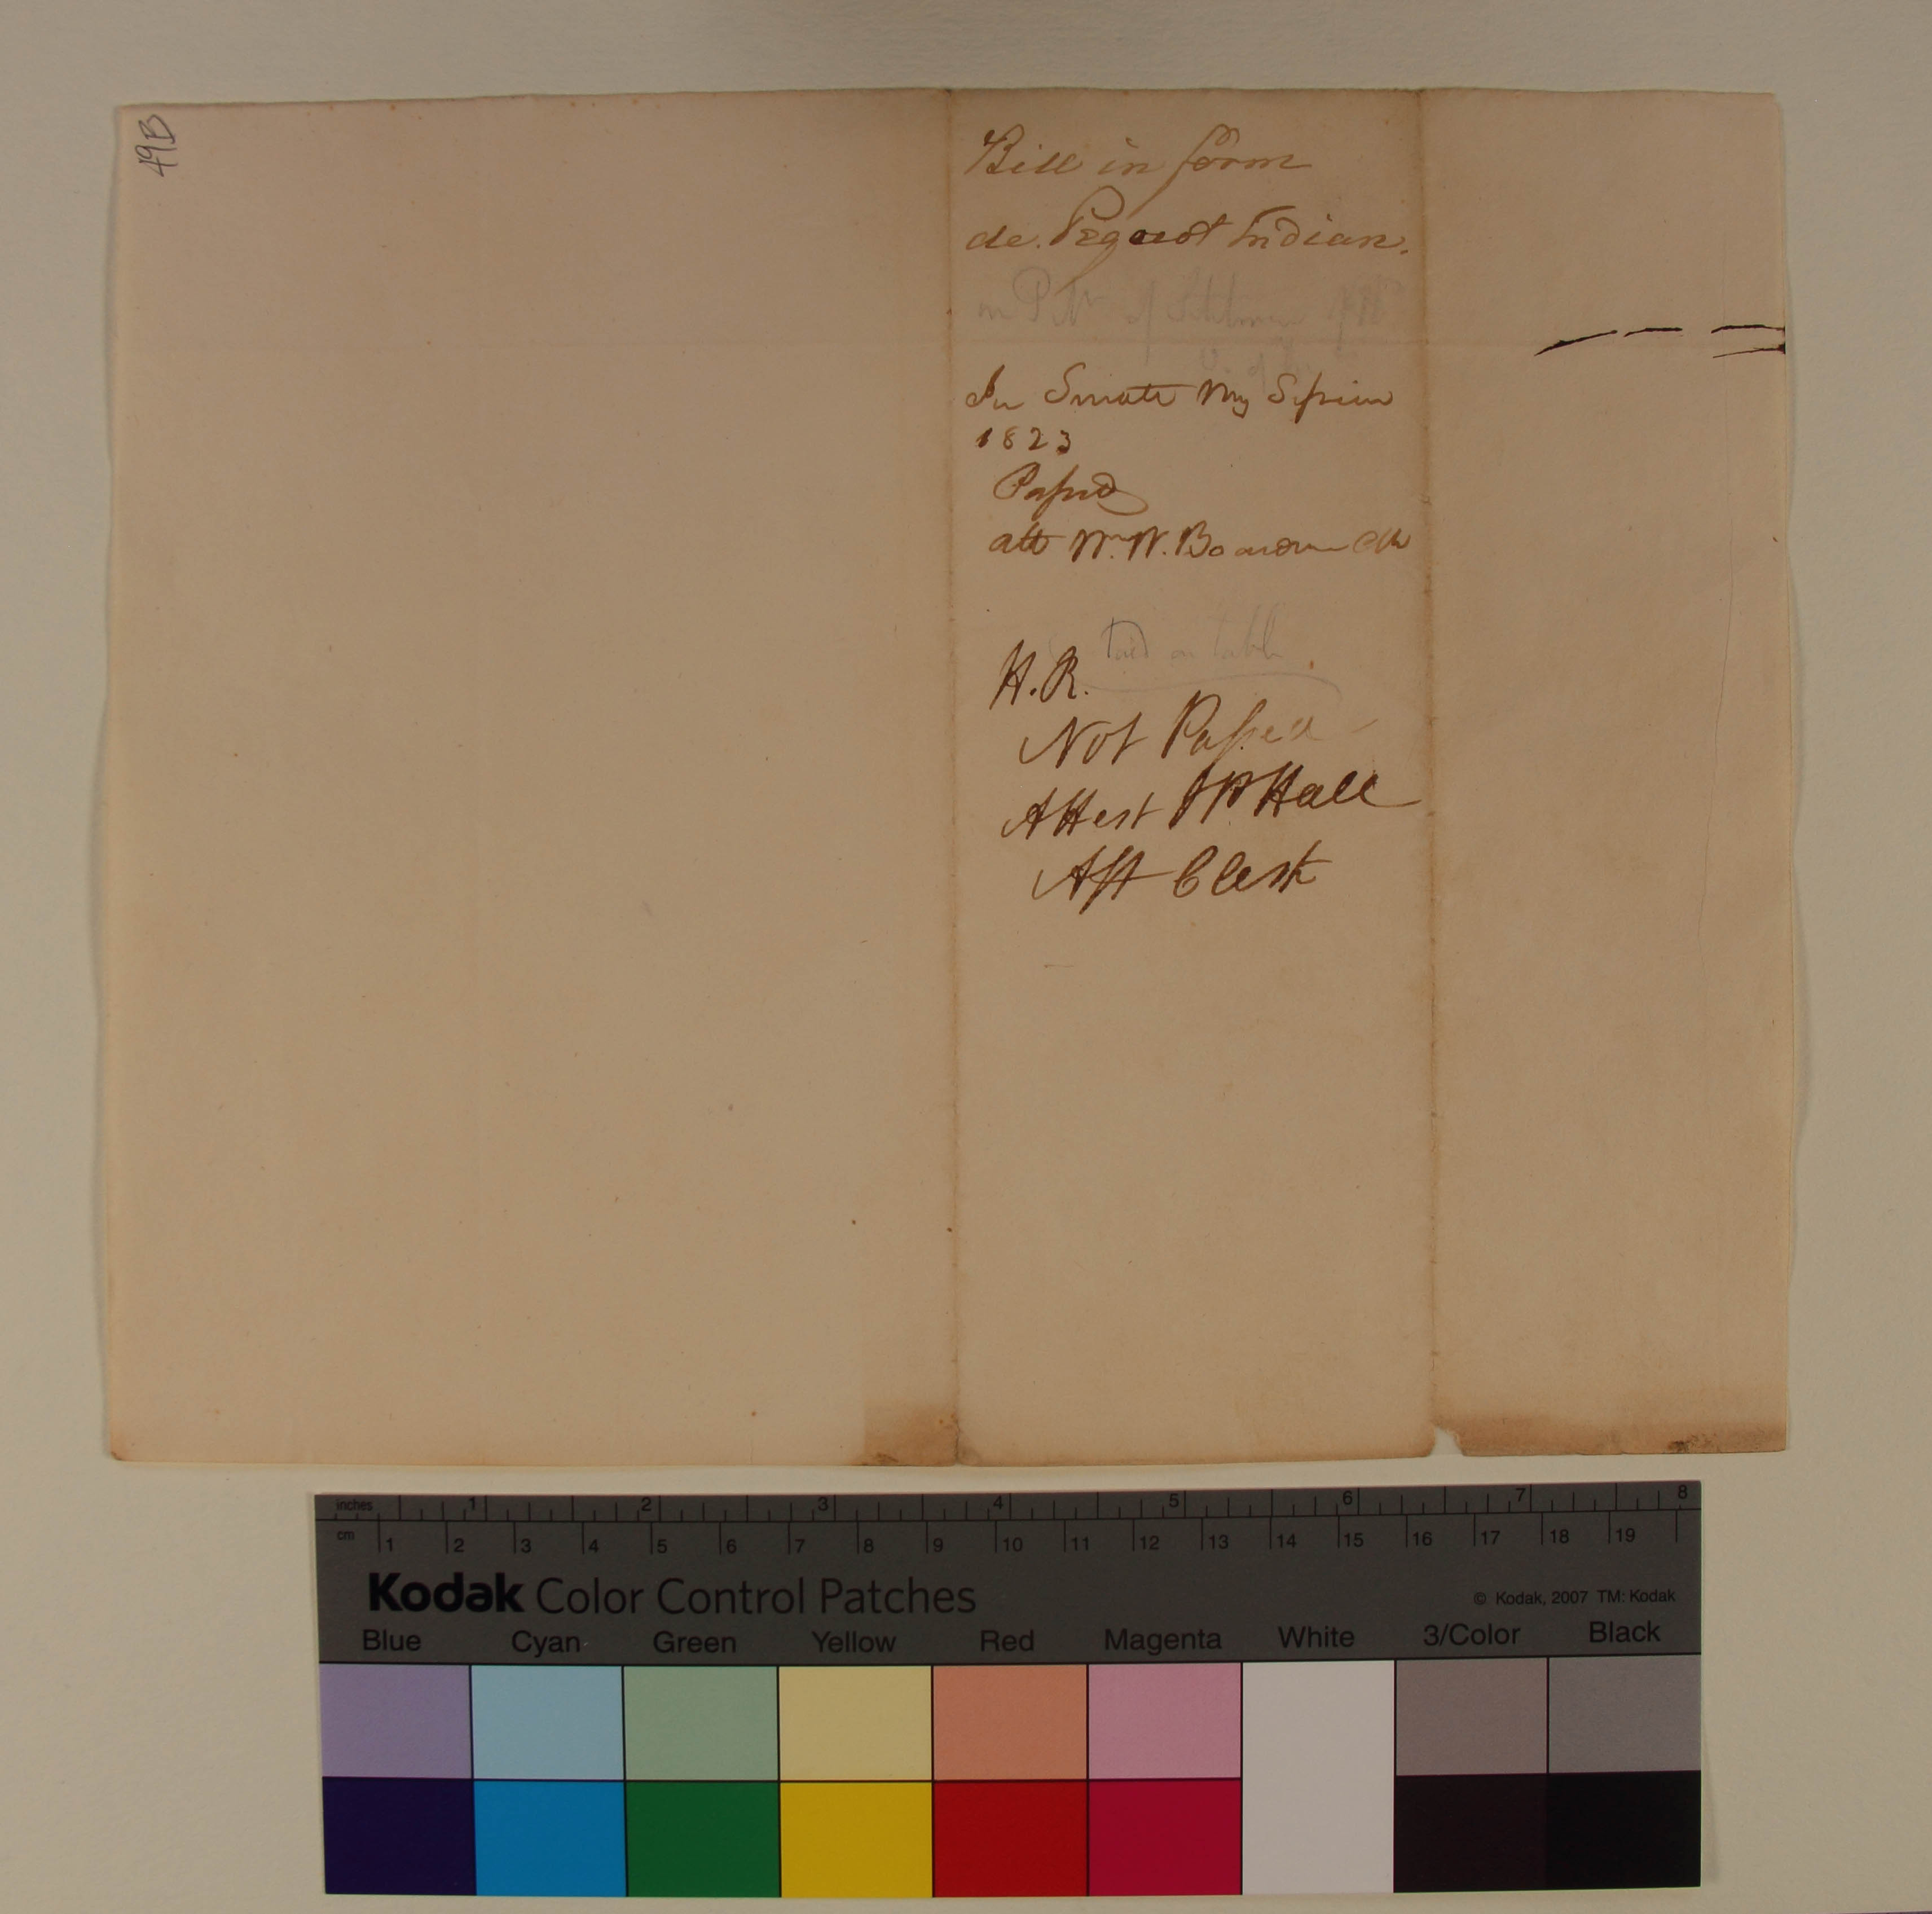 49B
Bill in form
de. Pequot Indian.
In Senate My Session
1823
Passed
att Wm. W. Boardman Clk
H.R.
laid on table
Not Passed
Attest Hall
Asst Clerk
inches 1 2 3 4 5 6 7 8
cm 1 2 3 4 5 6 7 8 9 10 11 12 13 14 15 16 17 18 19
Kodak Color Control Patches
© Kodak, 2007 TM: Kodak
Blue Cyan Green Yellow Red Magenta White 3/Color Black